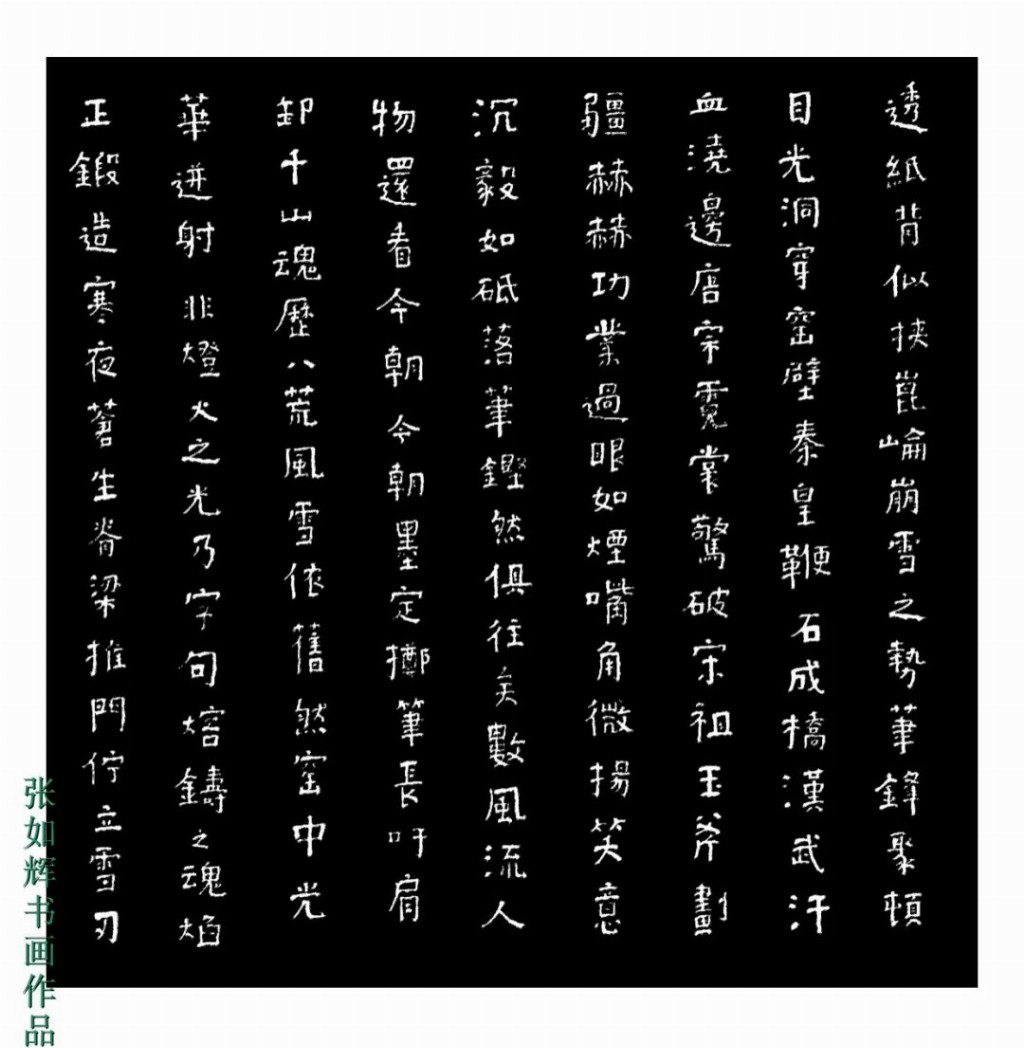 透紙背似挾崑崘崩雪之勢筆鋒聚頓
目光洞穿窑壁秦皇鞭石成橋漢武汗
血澆邊唐宗霓裳驚破宋祖玉斧劃
疆赫赫功業過眼如煙嘴角微揚笑意
沉毅如砥落筆鏗然俱往矣數風流人
物還看今朝今朝墨定擲筆長吁肩
卸千山魂歷八荒風雪依舊然窑中光
華迸射非燈火之光乃字句熔鑄之魂焰
正鍛造寒夜蒼生脊梁推門佇立雪刃
张如辉书画作品